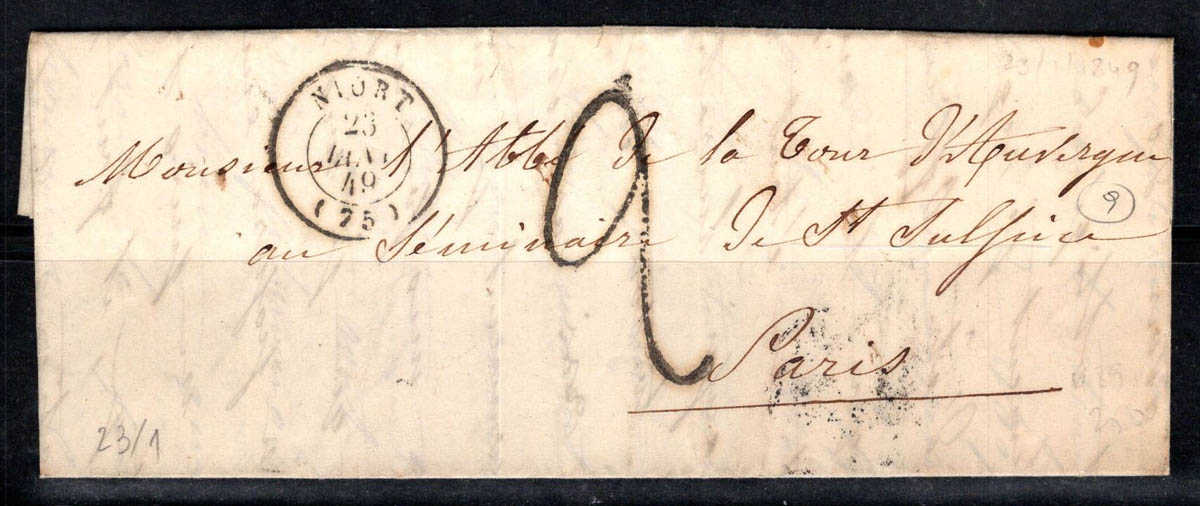 23/1/1849
NIORT
23
JANV
49
(75)
Monsieur l'Abbé de la Tour d'Auvergne
9
au Séminaire de St Sulpice
2
Paris
23/1